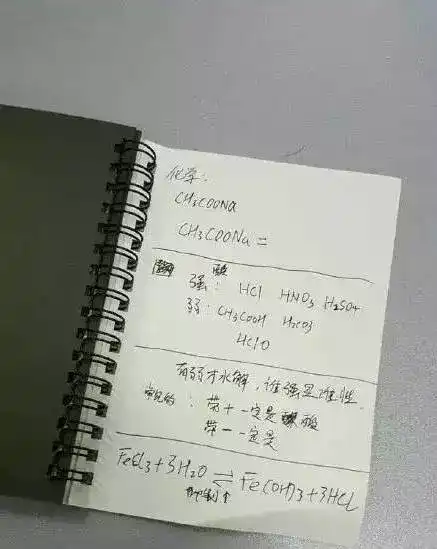 化学:
CH3COONa
CH3COONa =
强酸: HCl HNO3 H2SO4
弱: CH3COOH H2CO3
HClO
有弱才水解,谁强显谁性.
常见的: 带+一定是酸
带一一定是
FeCl3+3H2O ⇌ Fe(OH)3+3HCl
抑制↑